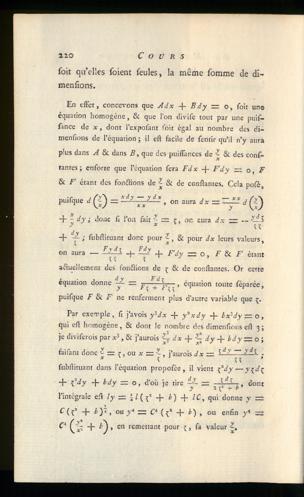 220 COURS
soit qu'elles soient seules, la même somme de di-
mensions.
En effet, concevons que Adx + Bdy = 0, soit une
équation homogène, & que l'on divise tout par une puis-
sance de x, dont l'exposant soit égal au nombre des di-
mensions de l'équation ; il est facile de sentir qu'il n'y aura
plus dans A & dans B, que des puissances de y/x & des cons-
tantes ; ensorte que l'équation sera Fdx + F'dy = 0, F
& F' étant des fonctions de y/x & de constantes. Cela posé,
puisque d(y/x) = (xdy − ydx)/xx, on aura dx = −xx/y d(y/x)
+ x/y dy ; donc si l'on fait y/x = z, on aura dx = − ydz/zz
+ dy/z ; substituant donc pour y/x, & pour dx leurs valeurs,
on aura − Fydz/zz + Fdy/z + F'dy = 0, F & F' étant
actuellement des fonctions de z & de constantes. Or cette
équation donne dy/y = Fdz/(Fz + F'zz), équation toute séparée,
puisque F & F' ne renferment plus d'autre variable que z.
Par exemple, si j'avois y³dx + y²xdy + bx³dy = 0,
qui est homogène, & dont le nombre des dimensions est 3 ;
je diviserois par x³, & j'aurois y³/x³ dx + y²/x² dy + bdy = 0 ;
faisant donc y/x = z, ou x = y/z, j'aurois dx = (zdy − ydz)/zz ;
substituant dans l'équation proposée, il vient z²dy − yzdz
+ z²dy + bdy = 0, d'où je tire dy/y = zdz/(2z² + b), dont
l'intégrale est ly = ¼ l (2z² + b) + lC, qui donne y =
C (2z² + b)^¼, ou y⁴ = C⁴ (2z² + b), ou enfin y⁴ =
C⁴ (2y²/x² + b), en remettant pour z, sa valeur y/x.